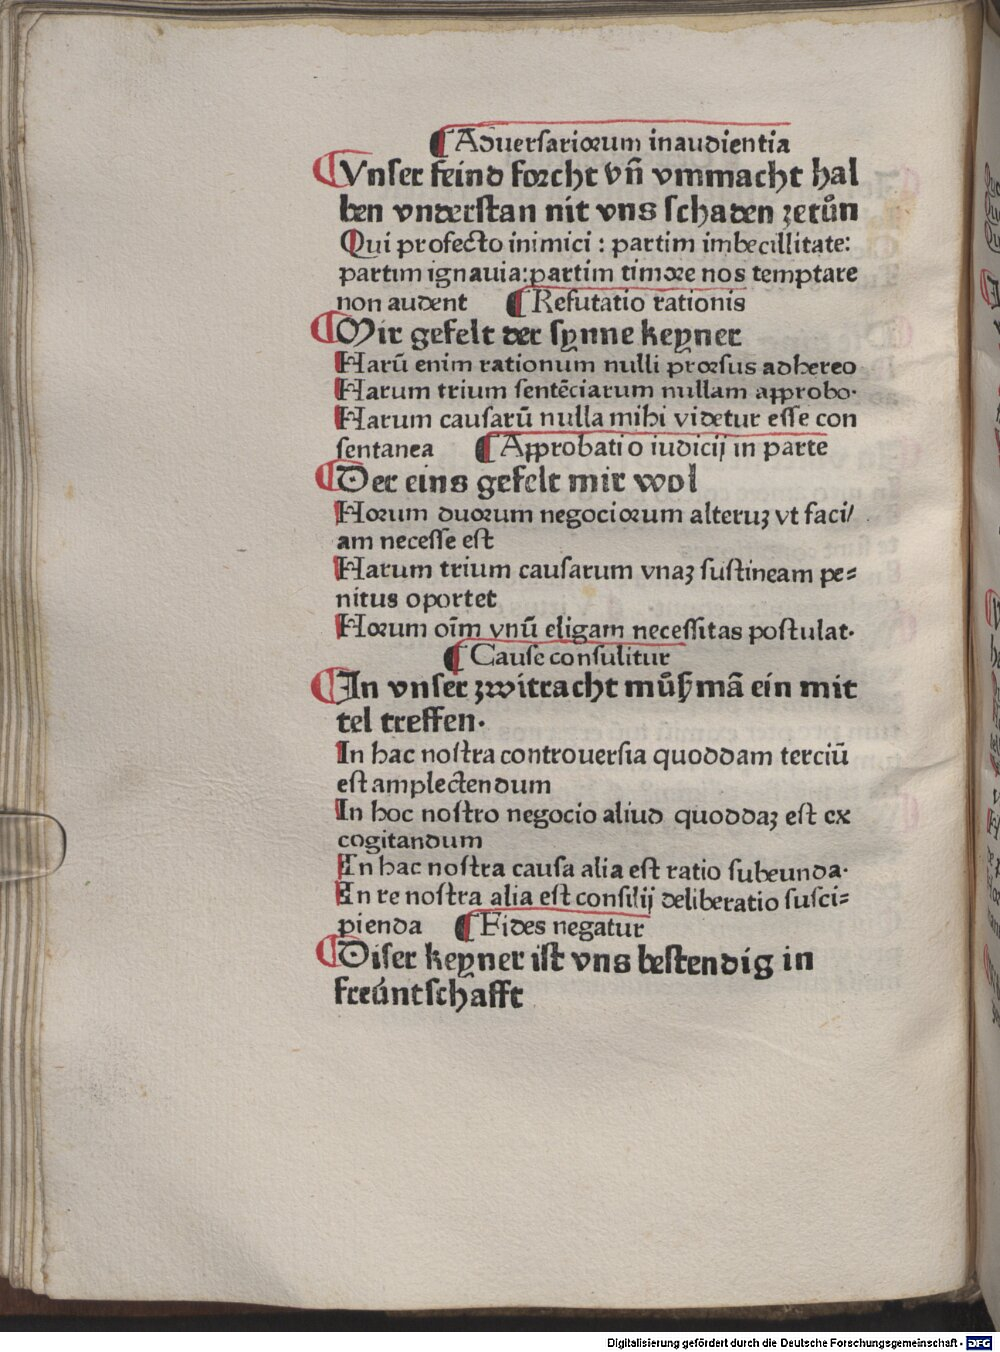 ¶ Aduersariorum inaudientia
¶ Vnser feind forcht vn̄ vmmacht hal
ben vnderstan nit vns schaden zetůn
Qui profecto inimici : partim imbecillitate:
partim ignauia: partim timore nos temptare
non audent ¶ Refutatio rationis
¶ Mir gefelt der synne keyner
Harū enim rationum nulli prorsus adhereo
Harum trium sentēciarum nullam approbo.
Harum causarū nulla mihi videtur esse con
sentanea ¶ Approbatio iudicij in parte
¶ Der eins gefelt mir wol
Horum duorum negociorum alteruꝫ vt faci/
am necesse est
Harum trium causarum vnaꝫ sustineam pe=
nitus oportet
Horum oīm vnū eligam necessitas postulat.
¶ Cause consulitur
¶ In vnser zwitracht můß mā ein mit
tel treffen.
In hac nostra controuersia quoddam terciū
est amplectendum
In hoc nostro negocio aliud quoddaꝫ est ex
cogitandum
In hac nostra causa alia est ratio subeunda.
In re nostra alia est consilij deliberatio susci=
pienda ¶ Fides negatur
¶ Diser keyner ist vns bestendig in
freuntschafft
Digitalisierung gefördert durch die Deutsche Forschungsgemeinschaft - DFG